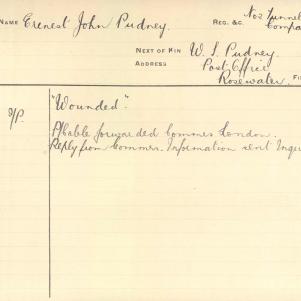 NAME Ernest John Pudney. REG. &C. No 2 Tunnel
Compa
NEXT OF KIN W. S. Pudney.
ADDRESS Post Office
Rosewater.
"Wounded".
P/Cable forwarded Commrs London.
Reply from Commrs. Information sent Inqu